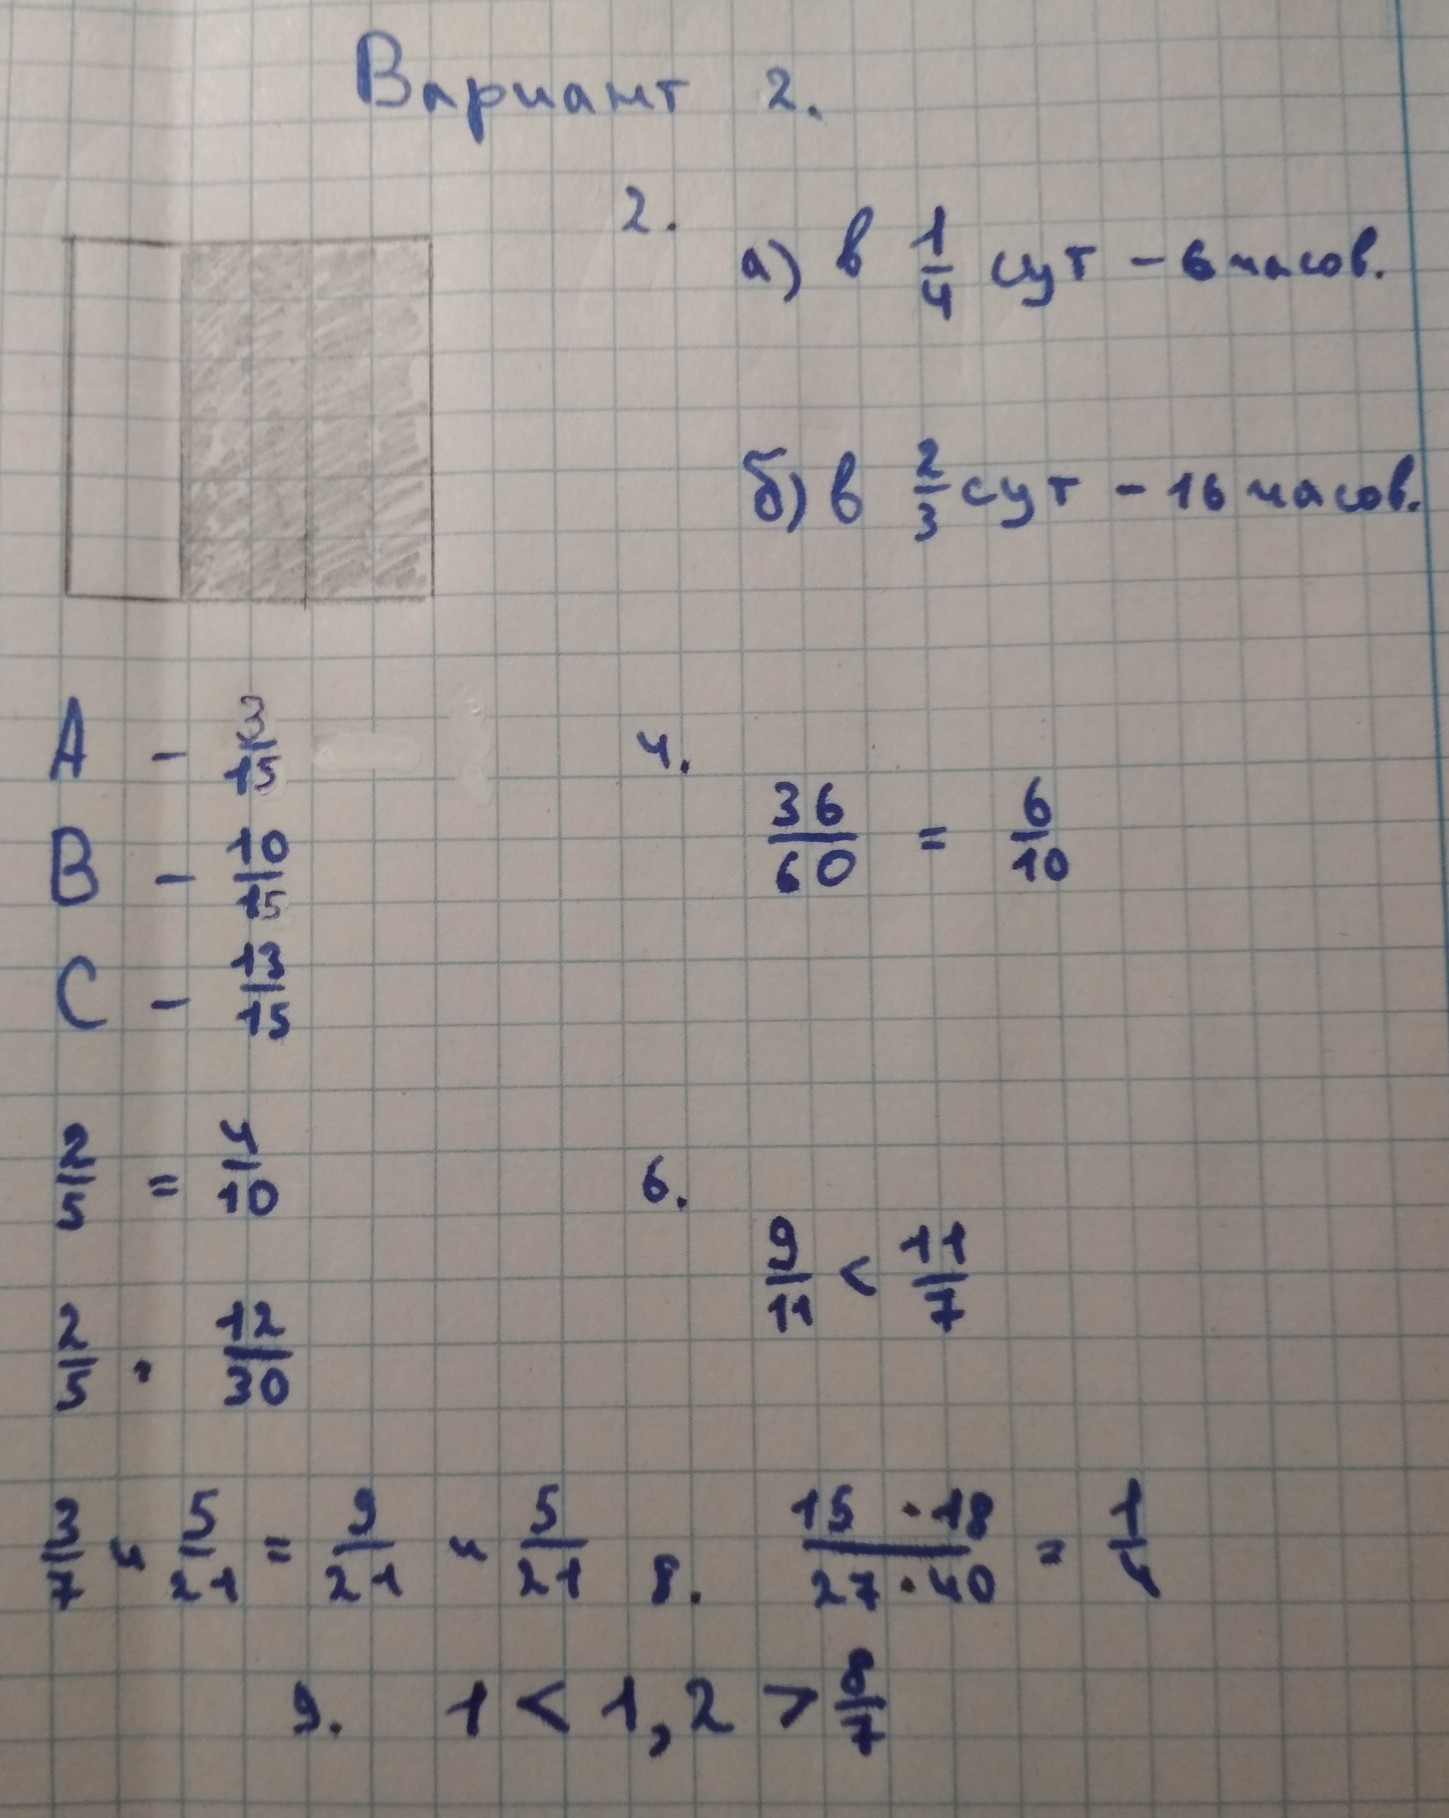 Вариант 2.
2.
а) в 1/4 сут - 6 часов.
б) в 2/3 сут - 16 часов.
A - 3/15
B - 10/15
C - 13/15
4.
36/60 = 6/10
2/5 = 4/10
2/5 = 12/30
6.
9/11 < 11/7
3/7 и 5/21 = 9/21 и 5/21
8. 15 · 18 / 27 · 40 = 1/4
9. 1 < 1,2 > 8/7